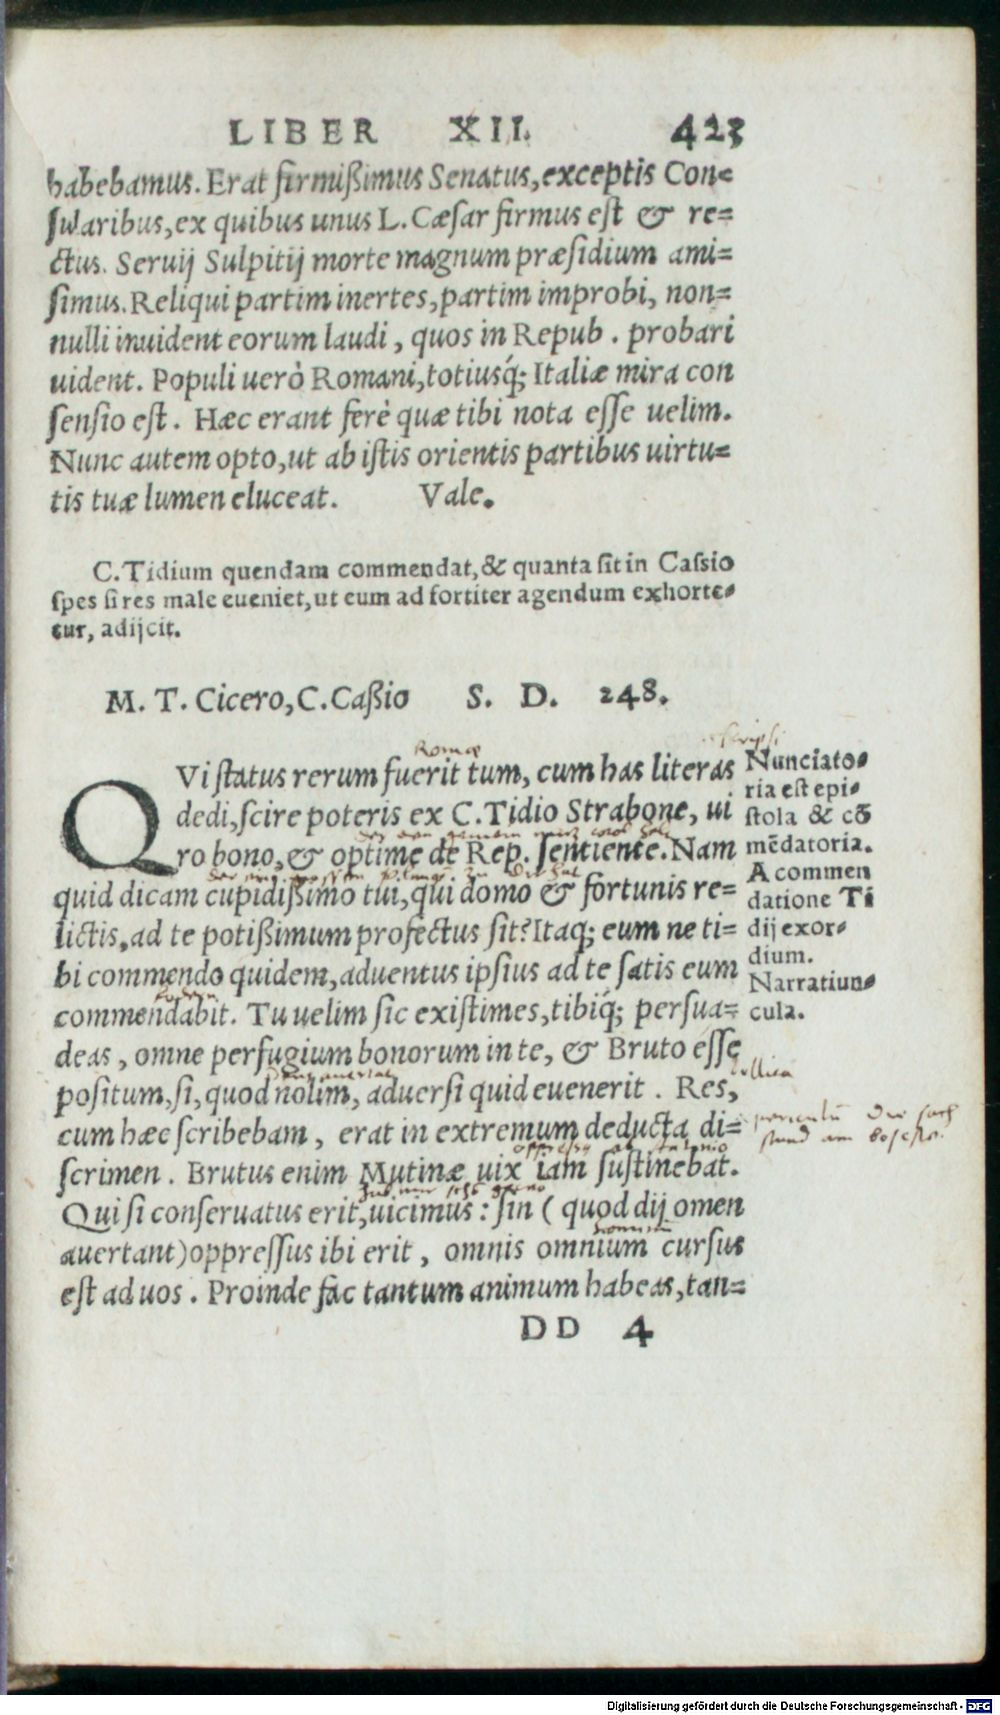 LIBER XII. 423
habebamus. Erat firmißimus Senatus, exceptis Con=
sularibus, ex quibus unus L. Cæsar firmus est & re=
ctus. Seruij Sulpitij morte magnum præsidium ami=
simus. Reliqui partim inertes, partim improbi, non=
nulli inuident eorum laudi, quos in Repub. probari
uident. Populi uerò Romani, totiusq́; Italiæ mira con
sensio est. Hæc erant ferè quæ tibi nota esse uelim.
Nunc autem opto, ut ab istis orientis partibus uirtu=
tis tuæ lumen eluceat. Vale.
C. Tidium quendam commendat, & quanta sit in Cassio
spes si res male eueniet, ut eum ad fortiter agendum exhorte=
tur, adijcit.
M. T. Cicero, C. Caßio S. D. 248.
Romæ
scripsi
QVi status rerum fuerit tum, cum has literas
dedi, scire poteris ex C. Tidio Strabone, ui
ro bono, & optime de Rep. sentiente. Nam
quid dicam cupidißimo tui, qui domo & fortunis re=
lictis, ad te potißimum profectus sit? Itaq; eum ne ti=
bi commendo quidem, aduentus ipsius ad te satis eum
commendabit. Tu uelim sic existimes, tibiq́; persua=
deas, omne perfugium bonorum in te, & Bruto esse
positum, si, quod nolim, aduersi quid euenerit. Res,
cum hæc scribebam, erat in extremum deducta di=
scrimen. Brutus enim Mutinæ uix iam sustinebat.
Qui si conseruatus erit, uicimus: sin (quod dij omen
auertant) oppressus ibi erit, omnis omnium cursus
est ad uos. Proinde fac tantum animum habeas, tan=
Nunciato=
ria est epi=
stola & cō
mēdatoria.
A commen
datione Ti
dij exor=
dium.
Narratiun=
cula.
DD 4
Digitalisierung gefördert durch die Deutsche Forschungsgemeinschaft - DFG